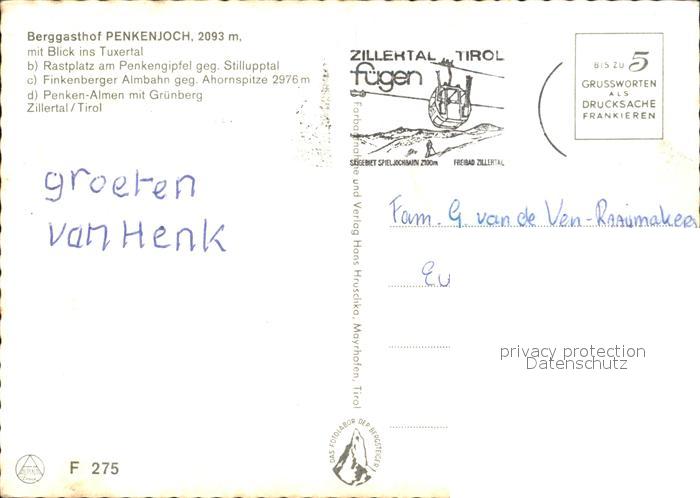 Berggasthof PENKENJOCH, 2093 m,
mit Blick ins Tuxertal
b) Rastplatz am Penkengipfel geg. Stillupptal
c) Finkenberger Almbahn geg. Ahornspitze 2976 m
d) Penken-Almen mit Grünberg
Zillertal/Tirol
ZILLERTAL TIROL
fügen
SKIGEBIET SPIELJOCHBAHN 2100m FREIBAD ZILLERTAL
BIS ZU 5
GRUSSWORTEN
ALS
DRUCKSACHE
FRANKIEREN
groeten
van Henk
Farbaufnahme und Verlag Hans Hruschka, Mayrhofen, Tirol
Fam. G. van de Ven-Raaijmakers
privacy protection
Datenschutz
DAS FOTOLABOR DER BERGSTEIGER
F 275